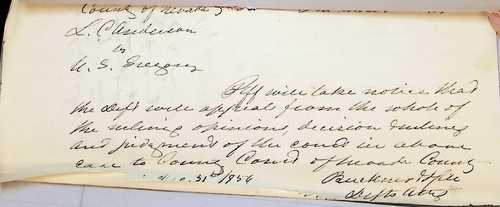 County of Nevada
L. C. Anderson
vs
U. S. Gregory
Plff will take notice that
the Deft will appeal from the whole of
the ruling opinions, decision & ruling
and judgment of the court in above
case to County Court of Nevada County
31st 1856
Buckner & Hill
Defts Atty